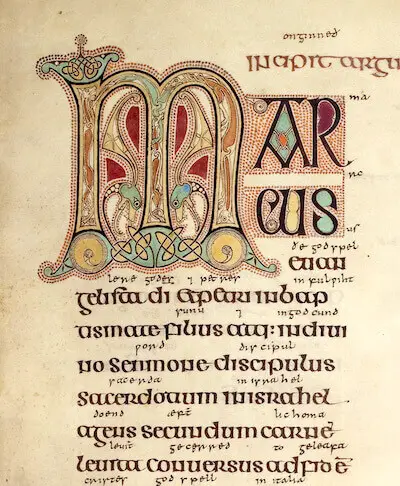 onginned
INCIPIT ARGU
MAR
ma
rc
CUS
us
de godspel
euan
lere godes ⁊ petres in fulpiht
gelista di et petri in bap
sunu ⁊ in godcund
tismate filius atq: in diui
discipul
no sermone discipulus
sacerda in israhel
sacerdotium in israhel
doend æft lichoma
agens secundum carnē
levit gecerred to geleafa
leuita conuersus ad fidē
cristes godspell in italia